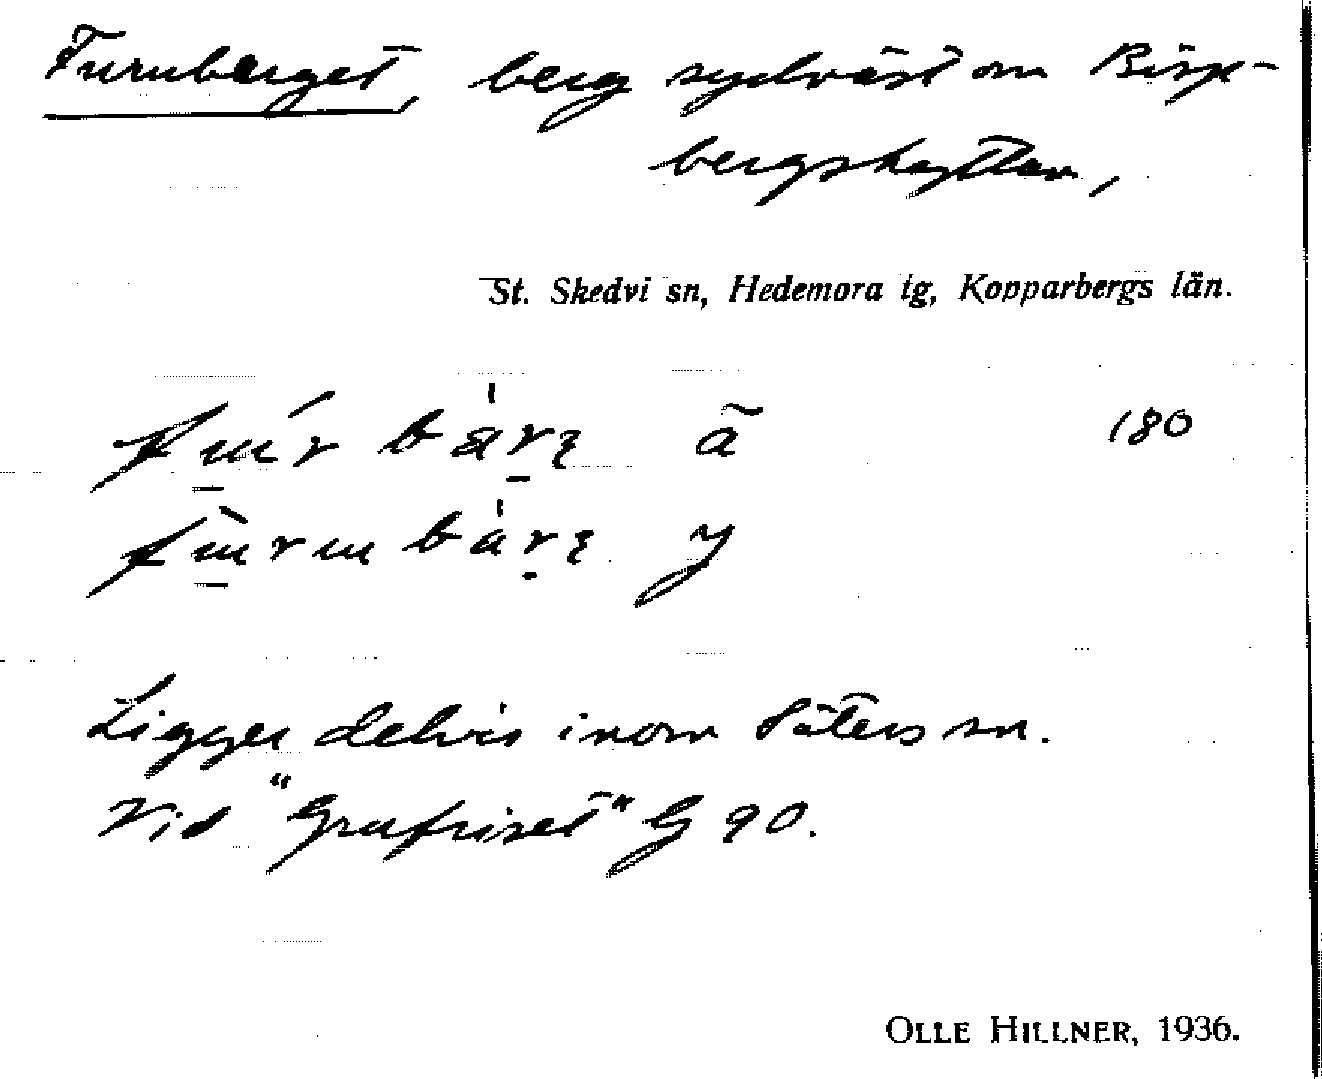 Furuberget, berg sydväst om Bisp-
bergshyttan,
St. Skedvi sn, Hedemora tg, Kopparbergs län.
fúr bàrε ã 180
fùru bàrε y
Ligger delvis inom Säters sn.
Vid "Grufriset" G 90.
OLLE HILLNER, 1936.